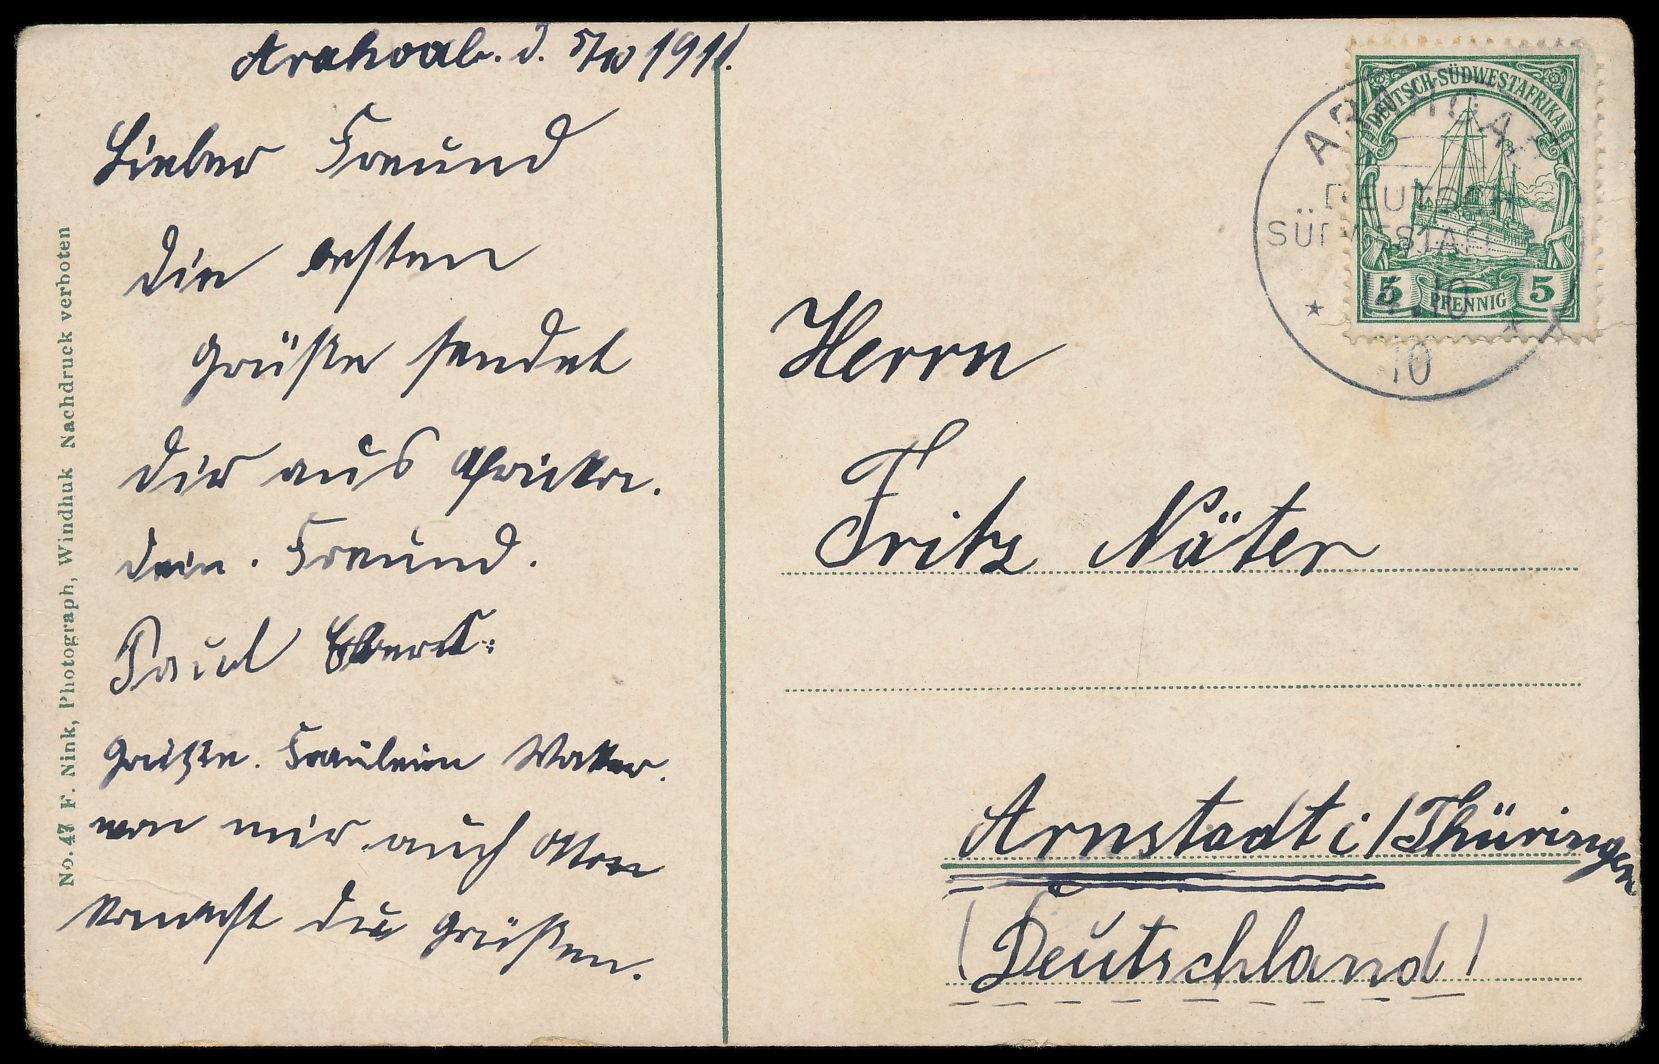 Arahoab. d. 5/10 191
Lieber Freund
die besten
Grüße sendet
dir aus Afrika.
dein. Freund.
Paul Ebert
Grüße. Fräulein
von mir auch
kannst du Grüßen.
No. 47 F. Nink, Photograph, Windhuk Nachdruck verboten
DEUTSCH-SÜDWESTAFRIKA
5 PFENNIG 5
DEUTSCH
SÜDWESTAFR
10
Herrn
Fritz Näter
Arnstadt i/Thüringen
(Deutschland)